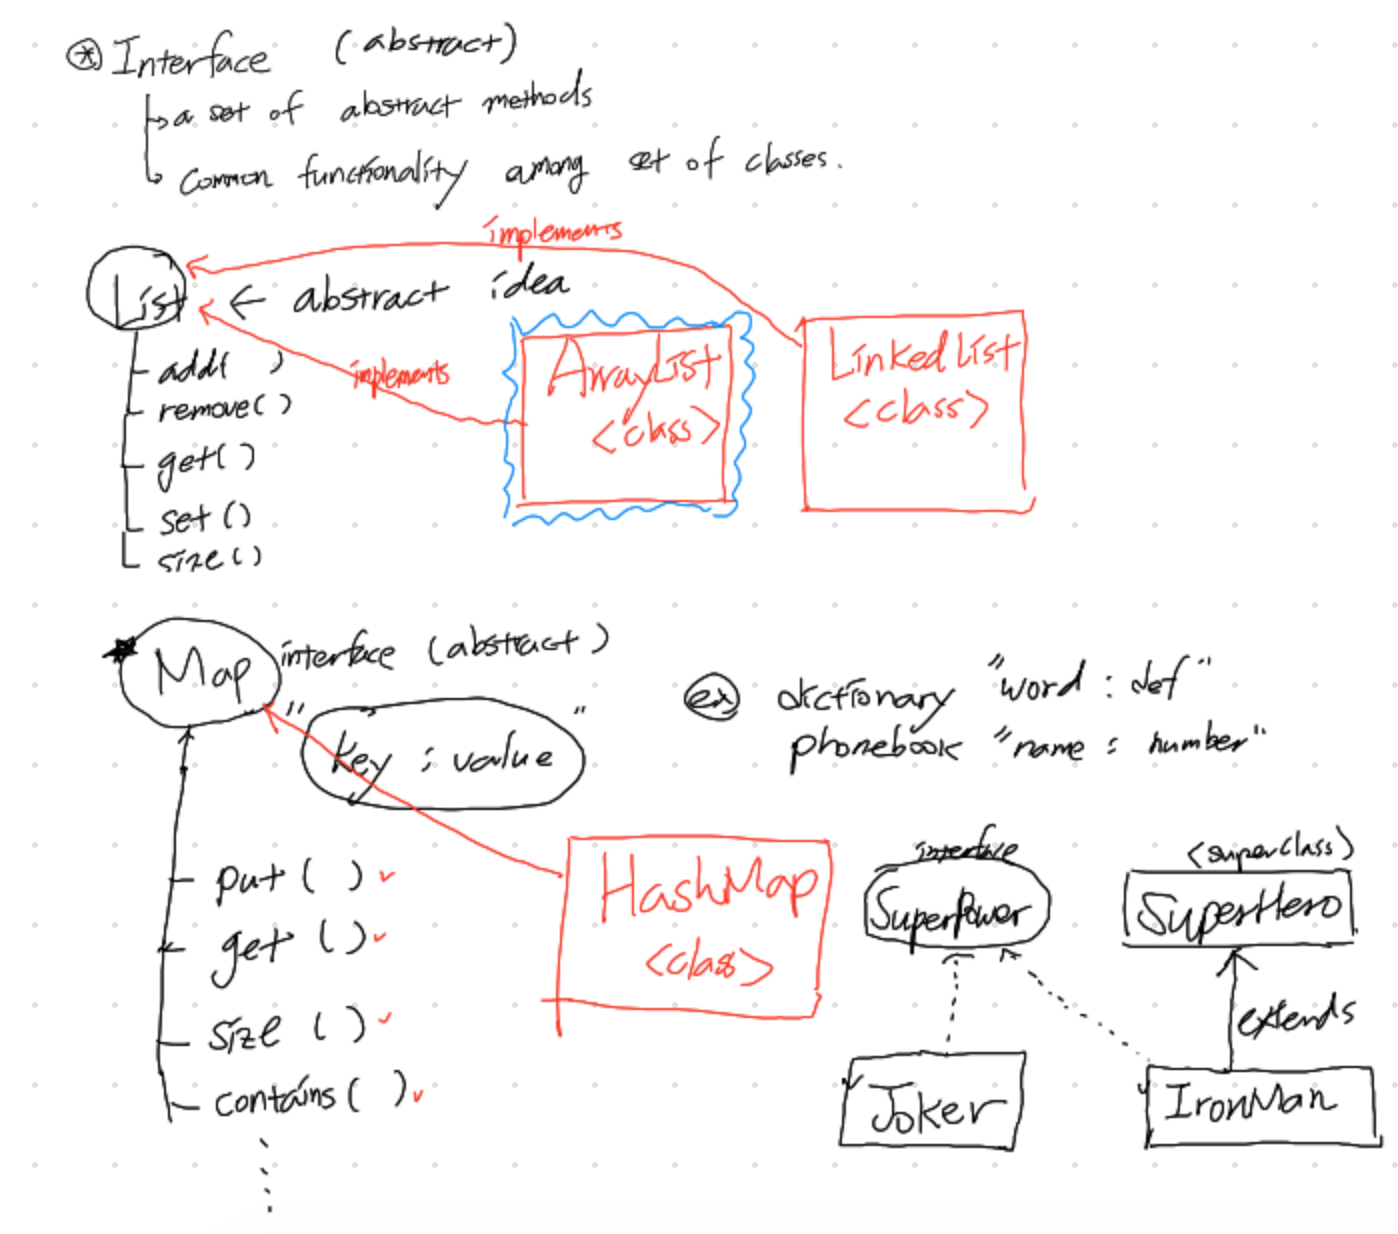 * Interface (abstract)
a set of abstract methods
Common functionality among set of classes.
implements
List ← abstract idea
add( )
implements
remove()
get()
set()
size()
ArrayList
<class>
LinkedList
<class>
Map interface (abstract)
" key : value "
ex dictionary "word : def"
phonebook "name : number"
put ( )
get ( )
size ( )
contains ( )
HashMap
<class>
interface
SuperPower
<superclass>
SuperHero
extends
Joker
IronMan